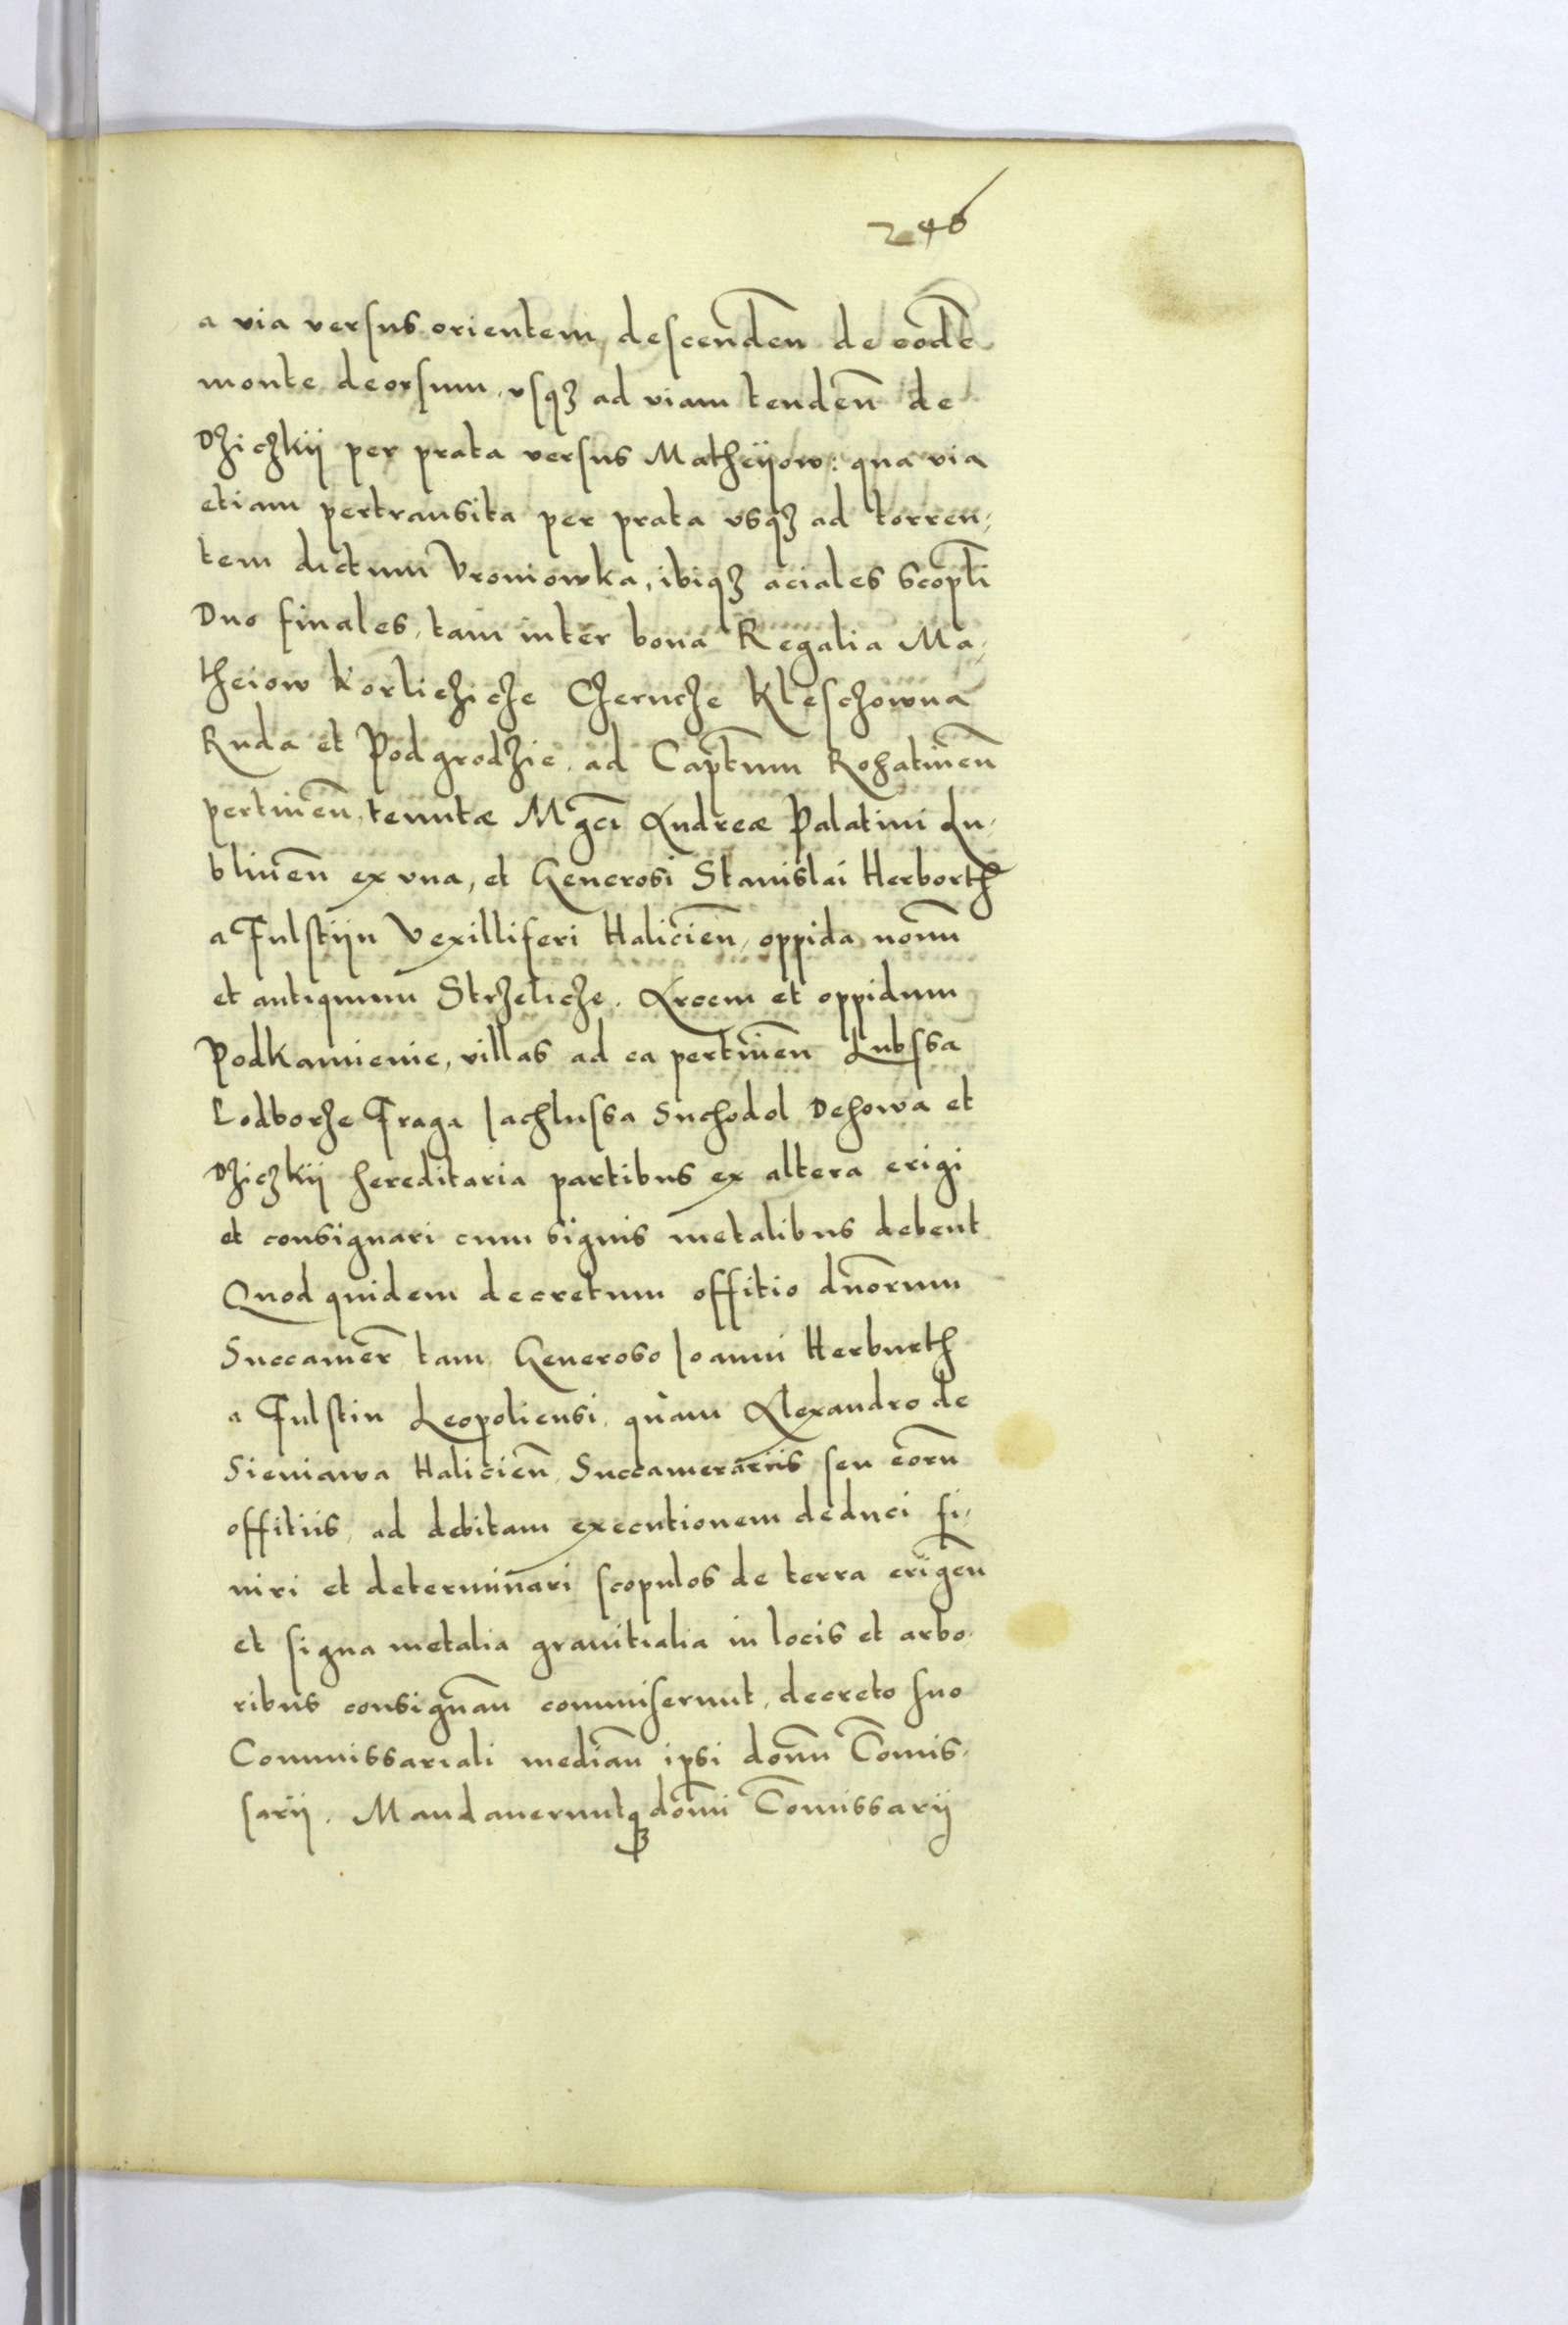 246
a via versus orientem, descenden̄ de eodē
monte deorsum, usq3 ad viam tenden̄ de
Dziczkij per prata versus Matheijow: qua via
etiam pertransita per prata usq3 ad torren,
tem dictum Vroniowka, ibiq3 aciales scopl̄i
Duo finales, tam inter bona Regalia Ma,
theiow Korlieziche Chernche Kleschowna
Ruda et Podgrodzie, ad Cap̄tum Rohatinen̄
pertinen̄, tenutæ Mgc̄i Andreæ Palatini Lu,
blinen̄ ex una, et Generosi Stanislai Herborth
a Fulstijn Vexilliferi Halicien̄, oppida novū
et antiquum Strzelicze. Arcem et oppidum
Podkamienie, villas ad ea pertinen̄ Lubssa
Lodborze Fraga Jachlussa Suchodol Dehowa et
Dziczkij hereditaria partibus ex altera erigi
et consignari cum signis metalibus debent
Quod quidem decretum offitio dn̄orum
Succamer̄ tam Generoso Joanni Herburth
a Fulstin Leopoliensi, quam Alexandro de
Sieniawa Halicien̄ Succamerariis seu eorū
offitiis, ad debitam executionem deduci fi,
niri et determinari scopulos de terra erigen̄
et signa metalia granitialia in locis et arbo,
ribus consignan̄ commiserunt, decreto suo
Commissariali median̄ ipsi domn̄ Com̄is,
sarij. Mandaveruntq3 domn̄i Com̄issarij